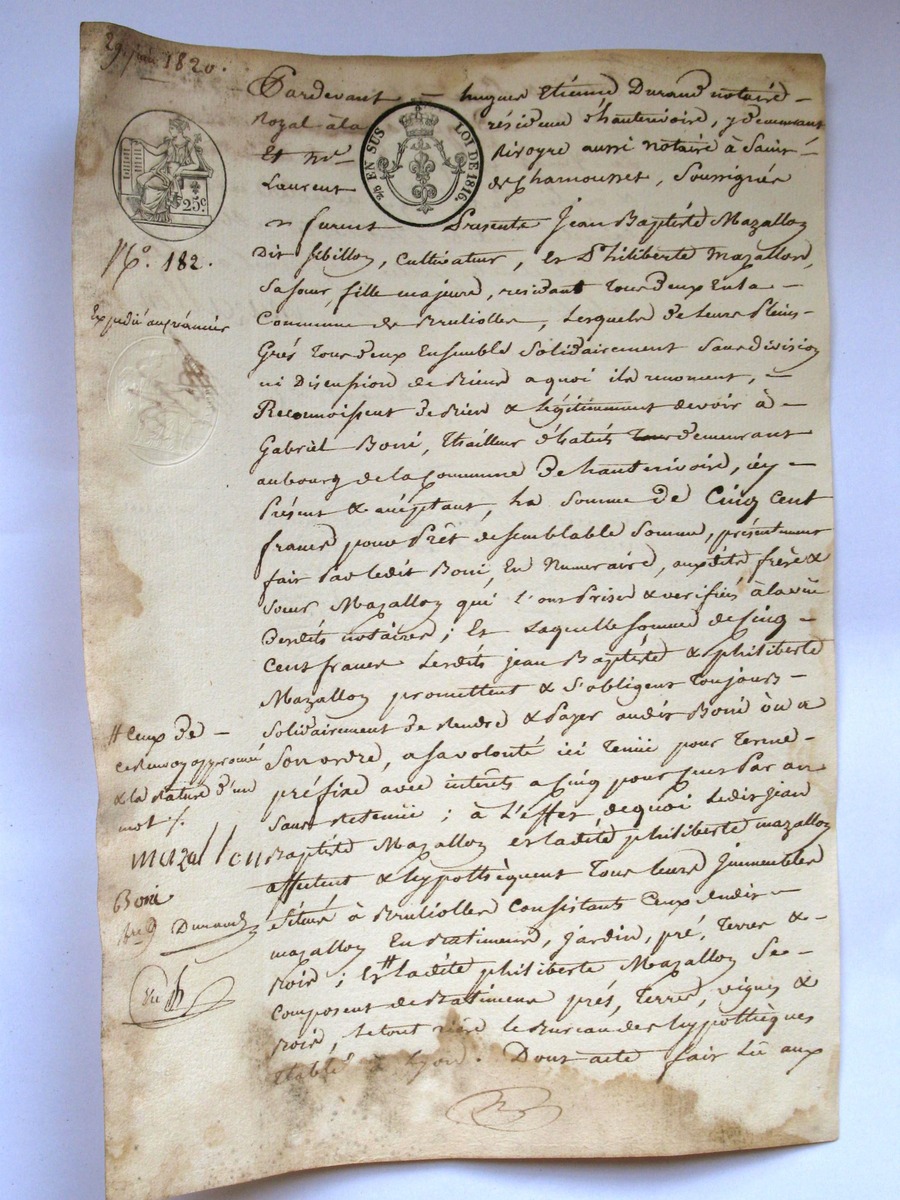 29 juin 1820.
Pardevant hugues Etiénne Durand notaire
Royal à la résidence d'hauterivoire, y demeurant
Et Me Rivoyre aussi notaire à Saint
Laurent de Chamousset, Soussignés
furent Presents Jean Baptiste Mazallon
Dit , Cultivateur, et Philiberte Mazallon,
Sa sœur, fille majeure, residant tous deux En la
Commune de Brulliolles, Lesquels de leurs Pleins
Grés tous deux Ensemble Solidairement Sans division
ni Discussion de Biens a quoi ils renoncent,
Reconnoissent de Bien & légitimement devoir à
Gabriël Boni, thailleur d'habits demeurant
au bourg de la Commune De hauterivoire, icy
Présent & acceptant, La Somme De Cinq Cent
francs pour Prêt de semblable Somme, présentement
fait Par ledit Boni, En Numeraire, auxdits frère &
Sœur Mazallon qui l'ont Prise & verifiés à la vüe
Desdits notaires; Et Laquelle Somme de Cinq
Cent francs Lesdits jean Baptiste & philiberte
Mazallon promettent & S'obligent Toujours
Solidairement De Rendre & Payer audit Boni ou a
Son ordre, a sa volonté ici Tenüe pour Terme
préfixe avec intérêts a Cinq pour Cent Par an
Sans Retenüe; à L'effet de quoi Ledit Jean
Baptiste Mazallon et ladite philiberte mazallon
affectent & hypothèquent Tous leurs Immeubles
Situés à Brulliolles Consistants Ceux dudit
mazallon En Batiments, Jardin, pré, Terres &
Bois; Et # ladite philiberte Mazallon Se
Composent de Batiments prés, Terres, vignes &
Bois, Le tout rière le Bureau des hypothèques
Etabli à Lyon. Dont acte fait Lû aux
25c.
26 EN SUS
LOI DE 1816.
No. 182.
Expedié au créancier
# Ceux De
ce Renvoy approuvé
& la Rature d'un
mot /.
mazallon
Boni
Durand